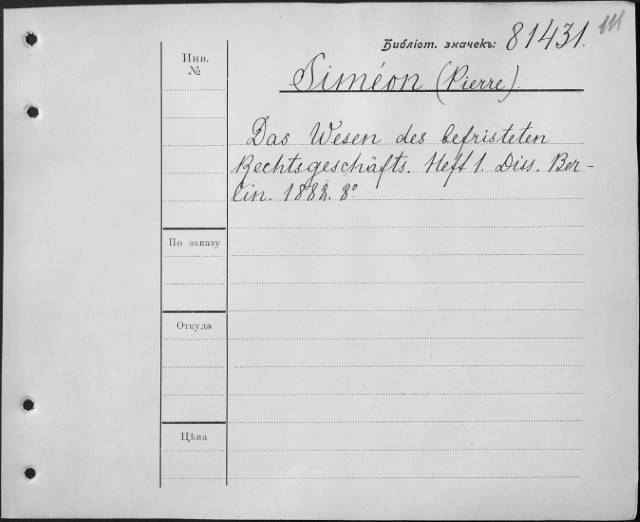 Библіот. значекъ: 81431.
Инв.
№
Siméon (Pierre)
Das Wesen des befristeten
Rechtsgeschäfts. Heft 1. Diss. Ber-
lin. 1882. 8°
По заказу
Откуда
Цѣна